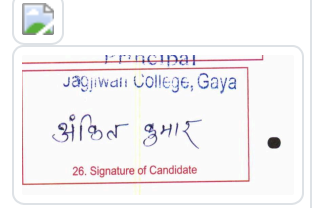 Principal
Jagjiwan College, Gaya
अंकित कुमार
26. Signature of Candidate